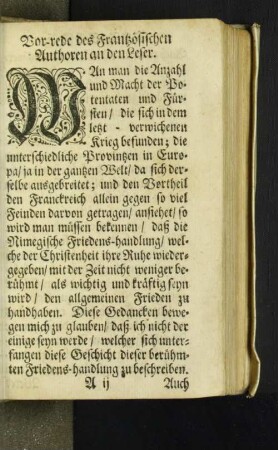 Vor-rede des Frantzösischen
Authoren an den Leser.
WAn man die Anzahl
und Macht der Po-
tentaten und Für-
sten / die sich in dem
letzt - verwichenen
Krieg befunden; die
unterschiedliche Provintzen in Euro-
pa/ ja in der gantzen Welt/ da sich der-
selbe ausgebreitet; und den Vortheil
den Franckreich allein gegen so viel
Feinden darvon getragen/ ansiehet/ so
wird man müssen bekennen / daß die
Nimegische Friedens-handlung/ wel-
che der Christenheit ihre Ruhe wieder-
gegeben/ mit der Zeit nicht weniger be-
rühmt/ als wichtig und kräftig seyn
wird / den allgemeinen Frieden zu
handhaben. Diese Gedancken bewe-
gen mich zu glauben/ daß ich nicht der
einige seyn werde / welcher sich unter-
fangen diese Geschicht dieser berühm-
ten Friedens-handlung zu beschreiben.
A ij Auch